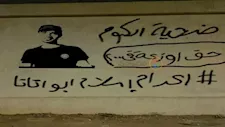 ضحية الكوم
حق اوزعة...
#اعدام إسلام ابو اتاتا